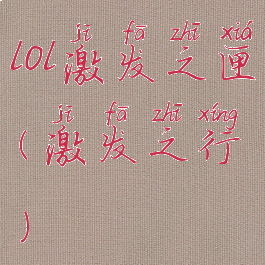 jī fā zhī xiá
lOl激发之匣
jī fā zhī xíng
(激发之行
)